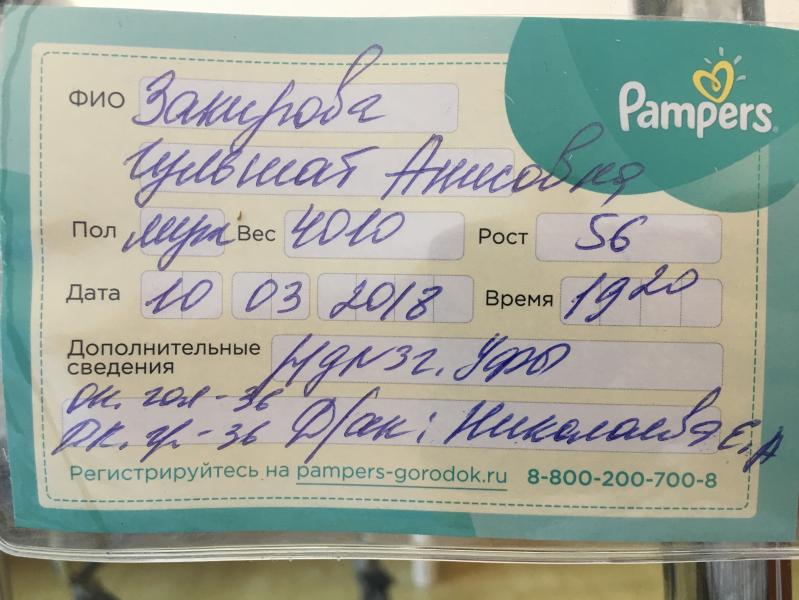 Pampers
ФИО Закирова
Гульшат Анисовна
Пол муж Вес 4010 Рост 56
Дата 10 03 2018 Время 19 20
Дополнительные сведения г. Уфы
ок. гол - 36
ок. гр - 36 Д/ак: Николаева Е.А
Регистрируйтесь на pampers-gorodok.ru 8-800-200-700-8